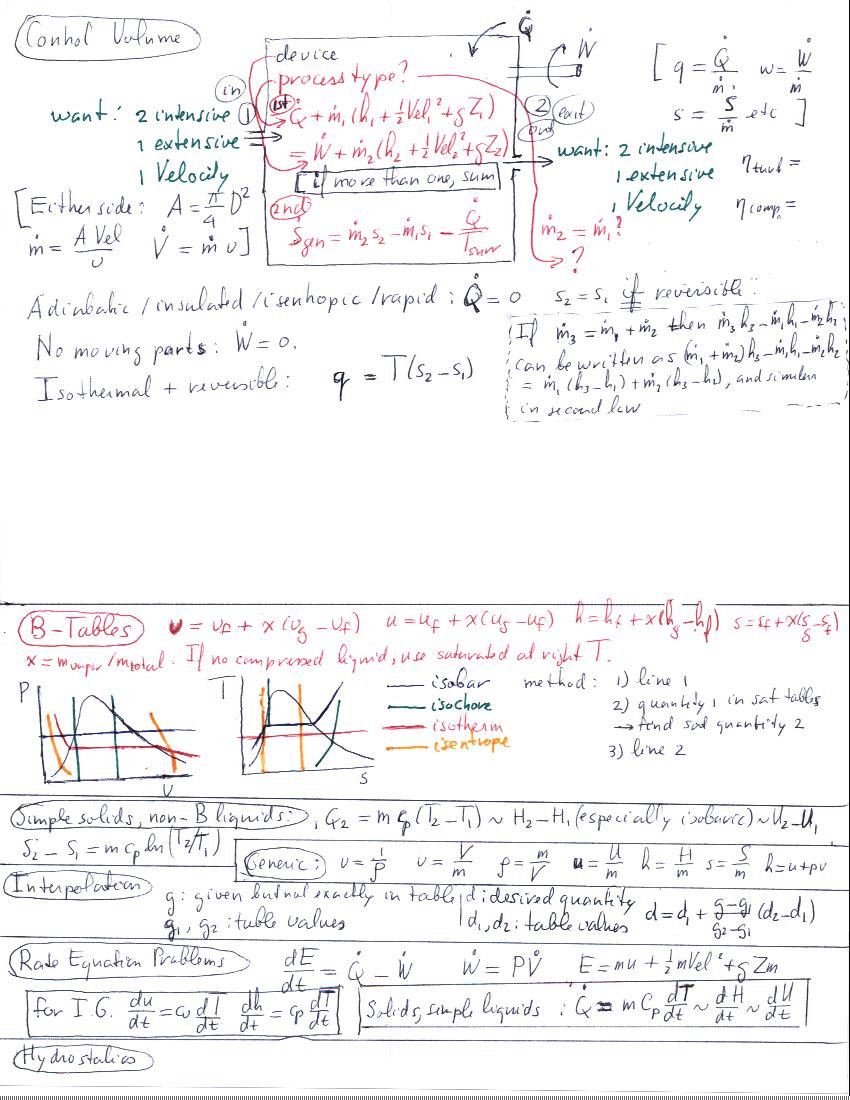 Control Volume
Q̇
Ẇ
device
process type?
[ q = Q̇/ṁ w = Ẇ/ṁ
s = Ṡ/ṁ etc ]
in
want: 2 intensive
1 extensive
1 Velocity
1
1st
Q̇ + ṁ₁(h₁ + ½Vel₁² + gZ₁)
= Ẇ + ṁ₂(h₂ + ½Vel₂² + gZ₂)
if more than one, sum
2nd
Ṡgen = ṁ₂s₂ - ṁ₁s₁ - Q̇/Tsurr
2
exit
out
want: 2 intensive
1 extensive
1 Velocity
ηturb =
ηcomp. =
ṁ₂ = ṁ₁?
?
[Either side: A = π/4 D²
ṁ = A Vel/υ V̇ = ṁ υ]
Adiabatic / insulated / isentropic / rapid : Q̇ = 0 s₂ = s₁ if reversible:
No moving parts: Ẇ = 0.
Isothermal + reversible: q = T(s₂ - s₁)
If ṁ₃ = ṁ₁ + ṁ₂ then ṁ₃h₃ - ṁ₁h₁ - ṁ₂h₂
can be written as (ṁ₁ + ṁ₂)h₃ - ṁ₁h₁ - ṁ₂h₂
= ṁ₁(h₃ - h₁) + ṁ₂(h₃ - h₂), and similar
in second law
B-Tables υ = υf + x(υg - υf) u = uf + x(ug - uf) h = hf + x(hg - hf) s = sf + x(sg - sf)
x = mvapor/mtotal. If no compressed liquid, use saturated at right T.
P
V
T
s
isobar
isochore
isotherm
isentrope
method: 1) line 1
2) quantity 1 in sat tables
→ find sat quantity 2
3) line 2
Simple solids, non-B liquids: ₁Q₂ = m cp (T₂ - T₁) ~ H₂ - H₁ (especially isobaric) ~ U₂ - U₁
S₂ - S₁ = m cp ln(T₂/T₁)
Generic: υ = 1/ρ υ = V/m ρ = m/V u = U/m h = H/m s = S/m h = u + pυ
Interpolation
g: given but not exactly in table
g₁, g₂: table values
d: desired quantity
d₁, d₂: table values
d = d₁ + g-g₁/g₂-g₁ (d₂ - d₁)
Rate Equation Problems dE/dt = Q̇ - Ẇ Ẇ = PV̇ E = mu + ½mVel² + gZm
for I.G. du/dt = cv dT/dt dh/dt = cp dT/dt
Solids, simple liquids : Q̇ = m Cp dT/dt ~ dH/dt ~ dU/dt
Hydrostatics